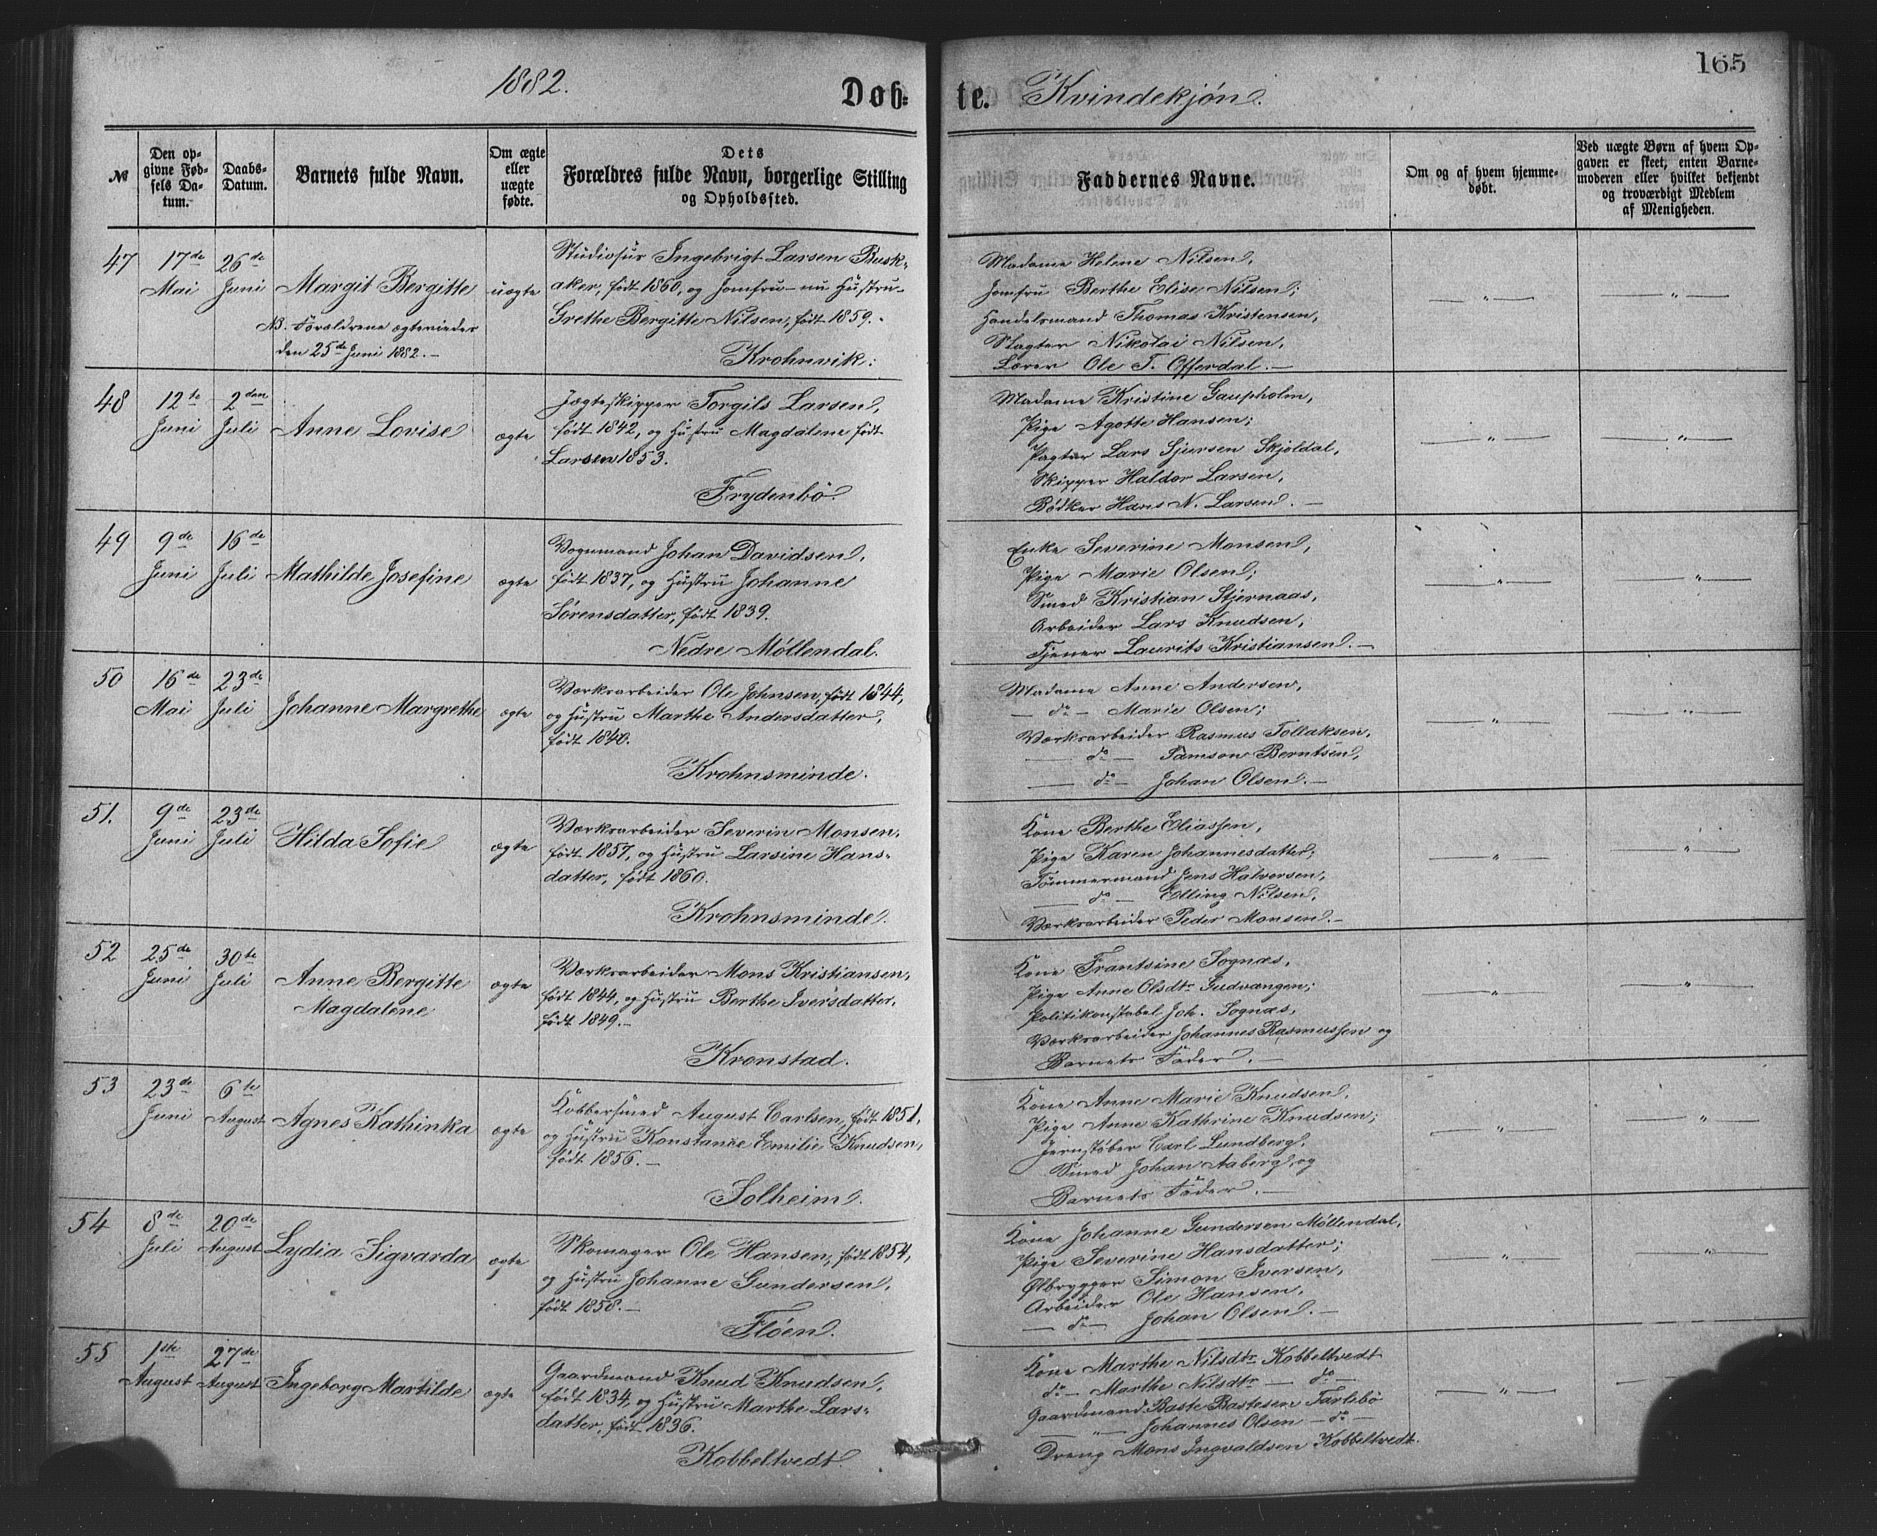 1882.
Døb-
te. Kvindekjøn.
165
№
Den opgivne Fødsels Datum.
Daabs-Datum.
Barnets fulde Navn.
Om ægte eller uægte fødte.
Dets Forældres fulde Navn, borgerlige Stilling og Opholdssted.
Faddernes Navne.
Om og af hvem hjemmedøbt.
Ved uægte Børn af hvem Opgaven er skeet; enten Barnemoderen eller hvilket bekjendt og troværdigt Medlem af Menigheden.
47
17de Mai
26de Juni
Margit Bergitte
NB. Forældrene ægteviedes
den 25de Juni 1882.-
uægte
Studiosus Ingebrigt Larsen Busk-
aker, født 1860, og Jomfru - nu Hustru -
Grethe Bergitte Nilsen, født 1859.-
Krohnvik.
Madame Helene Nilsen,
Jomfru Berthe Elise Nilsen;
Handelsmand Thomas Kristensen,
Slagter Nikolai Nilsen,
Lærer Ole T. Offerdal.-
— " —
— " —
48
12te Juni
2den Juli
Anne Lovise
ægte
Jægteskipper Torgils Larsen,
født 1842, og Hustru Magdalene født
Larsen 1853.
Frydenbø.
Madame Kristine Gaupholm,
Pige Agotte Hansen;
Pagter Lars Sjursen Skjoldal,
Skipper Haldor Larsen,
Bødker Hans N. Larsen.-
— " —
— " —
49
9de Juni
16de Juli
Mathilde Josefine
ægte
Vognmand Johan Davidsen,
født 1837, og Hustru Johanne
Sørensdatter, født 1839.
Nedre Møllendal.
Enke Severine Monsen,
Pige Marie Olsen;
Smed Kristian Stjernaas,
Arbeider Lars Knudsen,
Tjener Laurits Kristiansen.-
— " —
— " —
50
16de Mai
23de Juli
Johanne Margrethe
ægte
Værksarbeider Ole Johnsen, født 1844,
og Hustru Marthe Andersdatter,
født 1840.
Krohnsminde.
Madame Anne Andersen,
— do — Marie Olsen;
Værksarbeider Rasmus Tollaksen,
— do — Samson Berntsen,
— do — Johan Olsen.-
— " —
— " —
51.
9de Juni
23de Juli
Hilda Sofie
ægte
Værksarbeider Severin Monsen,
født 1857, og Hustru Larsine Hans-
datter, født 1860.
Krohnsminde.
Kone Berthe Eliassen,
Pige Karen Johannesdatter;
Tømmermand Jens Halversen,
— do — Elling Nilsen,
Værksarbeider Peder Monsen.-
— " —
— " —
52
25de Juni
30te Juli
Anne Bergitte
Magdalene
ægte
Værksarbeider Mons Kristiansen,
født 1844, og Hustru Berthe Iversdatter,
født 1849.-
Kronstad.
Kone Frantsine Sognæs,
Pige Anne Olsdtr Gudvangen;
Politikonstabel Joh. Sognæs,
Værksarbeider Johannes Rasmussen og
Barnets Fader.-
— " —
— " —
53
23de Juni
6te August
Agnes Kathinka
ægte
Kobbersmed August Carlsen, født 1851,
og Hustru Konstance Emilie Knudsen,
født 1856.-
Solheim.
Kone Anne Marie Knudsen,
Pige Anne Kathrine Knudsen;
Jernstøber Carl Lundberg,
Smed Johan Aaberg, og
Barnets Fader.-
— " —
— " —
54
8de Juli
20de August
Lydia Sigvarda
ægte
Skomager Ole Hansen, født 1854,
og Hustru Johanne Gundersen,
født 1858.-
Fløen.
Kone Johanne Gundersen Møllendal,
Pige Severine Hansdatter;
Ølbrygger Simon Iversen,
Arbeider Ole Hansen,
— do — Johan Olsen.-
— " —
— " —
55
1ste August
27de August
Ingeborg Martilde
ægte
Gaardmand Knud Knudsen,
født 1834, og Hustru Marthe Lars-
datter, født 1836.
Kobbeltvedt.
Kone Marthe Nilsdtr Kobbeltvedt
do — Marthe Nilsdtr — do —
Gaardmand Baste Bastesen Tarlebø
— " — Johannes Olsen — do —
Dreng Mons Ingvaldsen Kobbeltvedt.
— " —
— " —